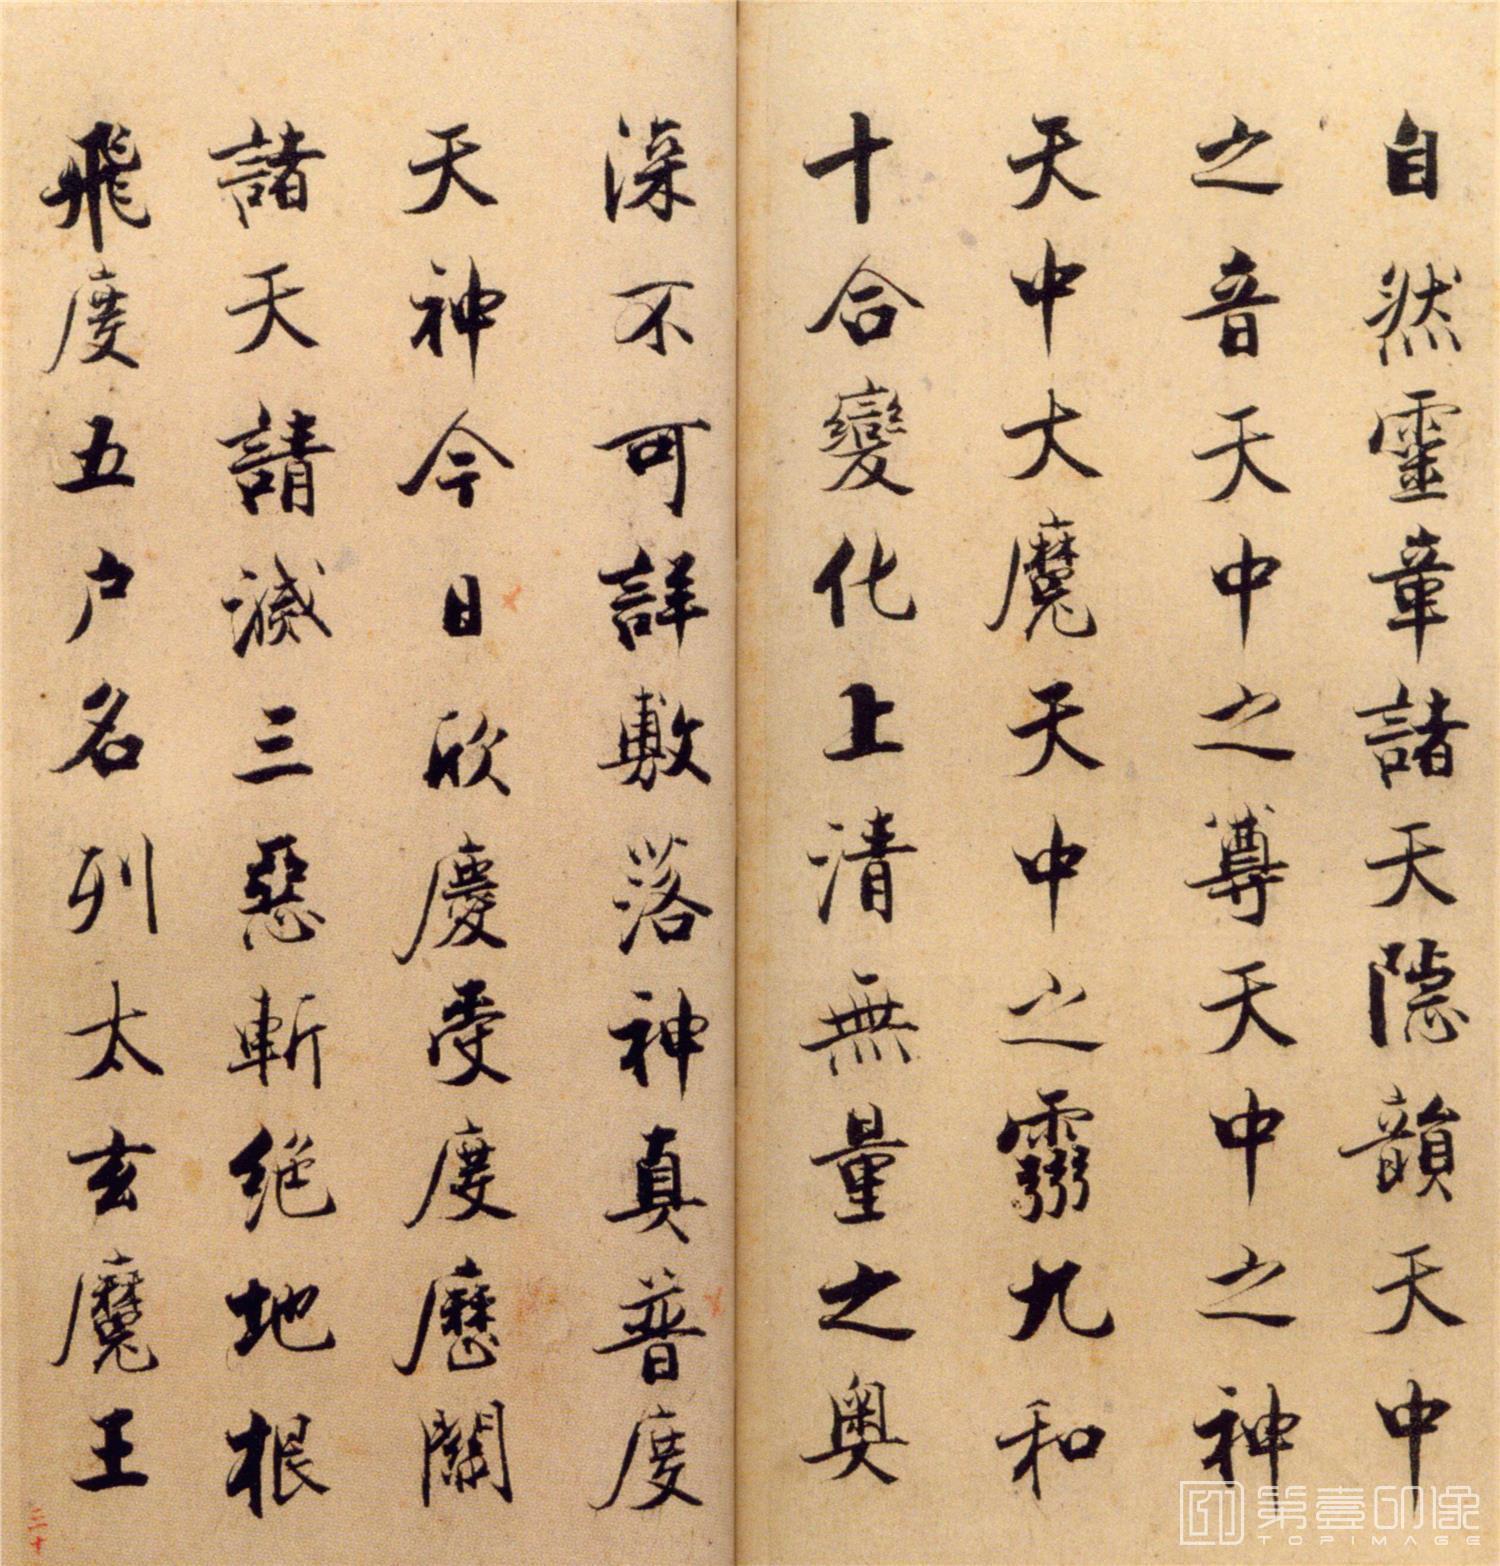 自然靈章諸天隱韻天中
之音天中之尊天中之神
天中大魔天中之靈九和
十合變化上清無量之奧
深不可詳敷落神真普度
天神今日欣慶受度歷關
諸天請滅三惡斬絕地根
飛度五户名列太玄魔王
三十
第壹印像
TOPIMAGE